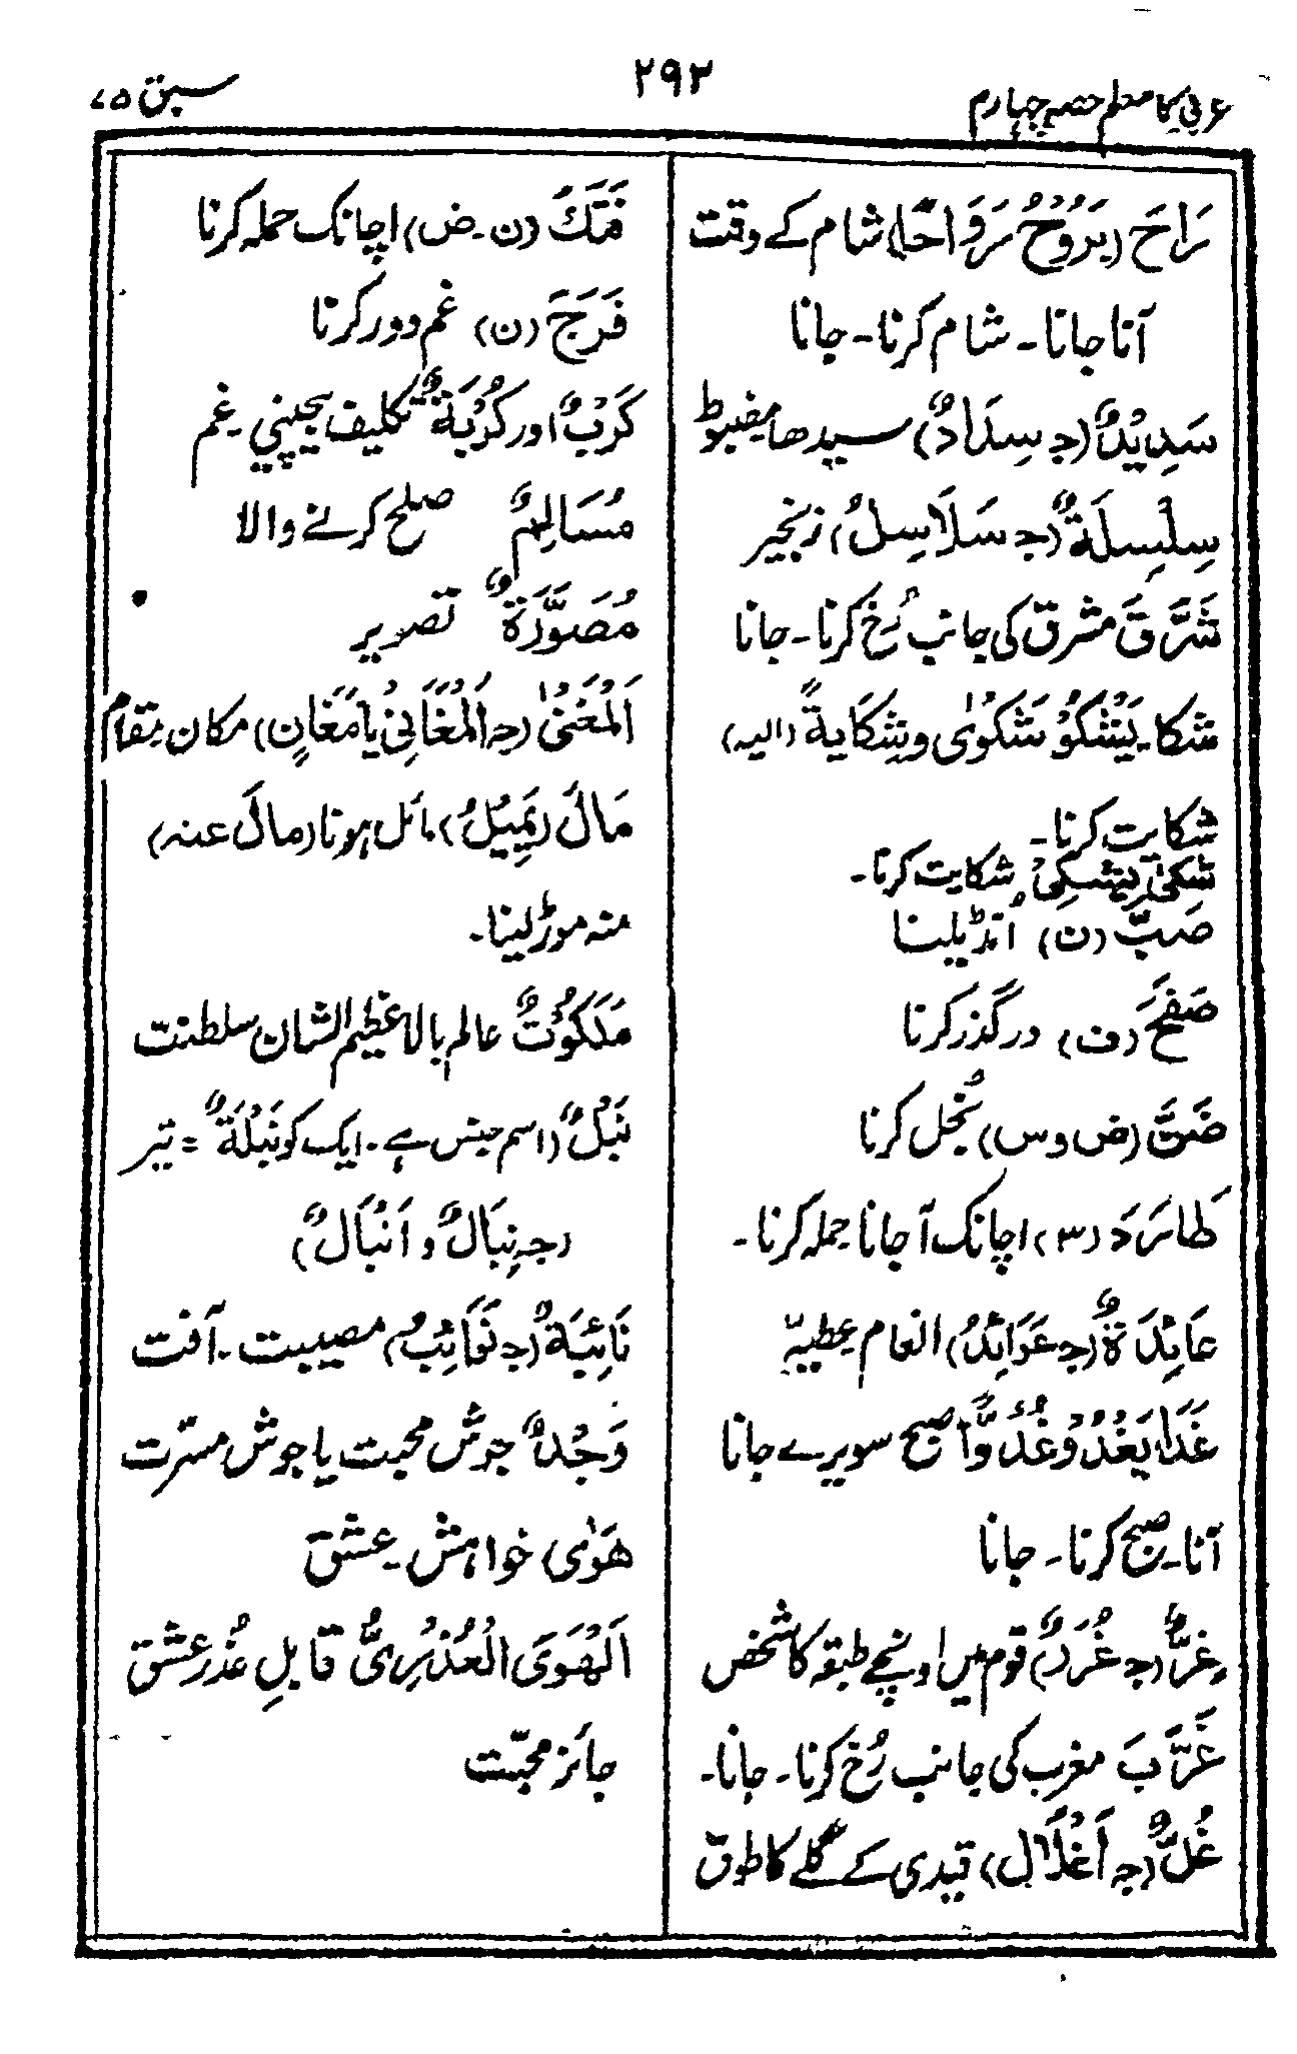 عربی کا معلم حصہ چہارم
۲۹۲
سبق ۷۵
رَاحَ (یَرُوْحُ رَوَاحًا) شام کے وقت
آنا جانا۔ شام کرنا۔ جانا
سَدِیْدٌ (جـ سِدَادٌ) سیدھا مضبوط
سِلْسِلَةٌ (جـ سَلَاسِلُ) زنجیر
شَرَّقَ مشرق کی جانب رُخ کرنا۔ جانا
شکا۔ یَشْکُوْ شَکْوٰی وشِکَایَةً (الیہ)
شکایت کرنا۔
شکیٰ یَشْکِیْ شکایت کرنا۔
صَبَّ (ن) اُنڈیلنا
صَفَحَ (ف) درگذر کرنا
ضَنَّ (ض و س) بُخل کرنا
طَارَدَ (۳) اچانک آجانا حملہ کرنا۔
عَائِدَةٌ (جـ عَوَائِدُ) انعام عطیہّ
غَدَا یَغْدُوْ غُدُوًّا صبح سویرے جانا
آنا۔ صبح کرنا۔ جانا
غِرٌّ (جـ غُرَرٌ) قوم میں اونچے طبقہ کا شخص
غَرَّبَ مغرب کی جانب رُخ کرنا۔ جانا۔
غُلٌّ (جـ اَغْلَالٌ) قیدی کے گلے کا طوق
فَتَكَ (ن۔ض) اچانک حملہ کرنا
فَرَجَ (ن) غم دور کرنا
کَرْبٌ اور کُرْبَةٌ تکلیف بیچینی۔ غم
مُسَالِمٌ صلح کرنے والا
مُصَوَّرَةٌ تصویر
اَلْمَغْنٰی (جـ اَلْمَغَانِیْ یا مَغَانٍ) مکان مقام
مَالَ (یَمِیْلُ) مائل ہونا (مالَ عنہ)
منہ موڑ لینا۔
مَلَکُوْتٌ عالم بالا عظیم الشان سلطنت
نَبْلٌ (اسم جنس ہے۔ ایک کو نَبْلَةٌ = تیر
(جـ نِبَالٌ و اَنْبَالٌ)
نَائِبَةٌ (جـ نَوَائِبُ) مصیبت۔ آفت
وَجْدٌ جوش محبت یا جوش مسرّت
هَوٰی خواہش۔ عشق
اَلْهَوَی الْعُذْرِیُّ قابلِ عُذر عشق
جائز محبّت